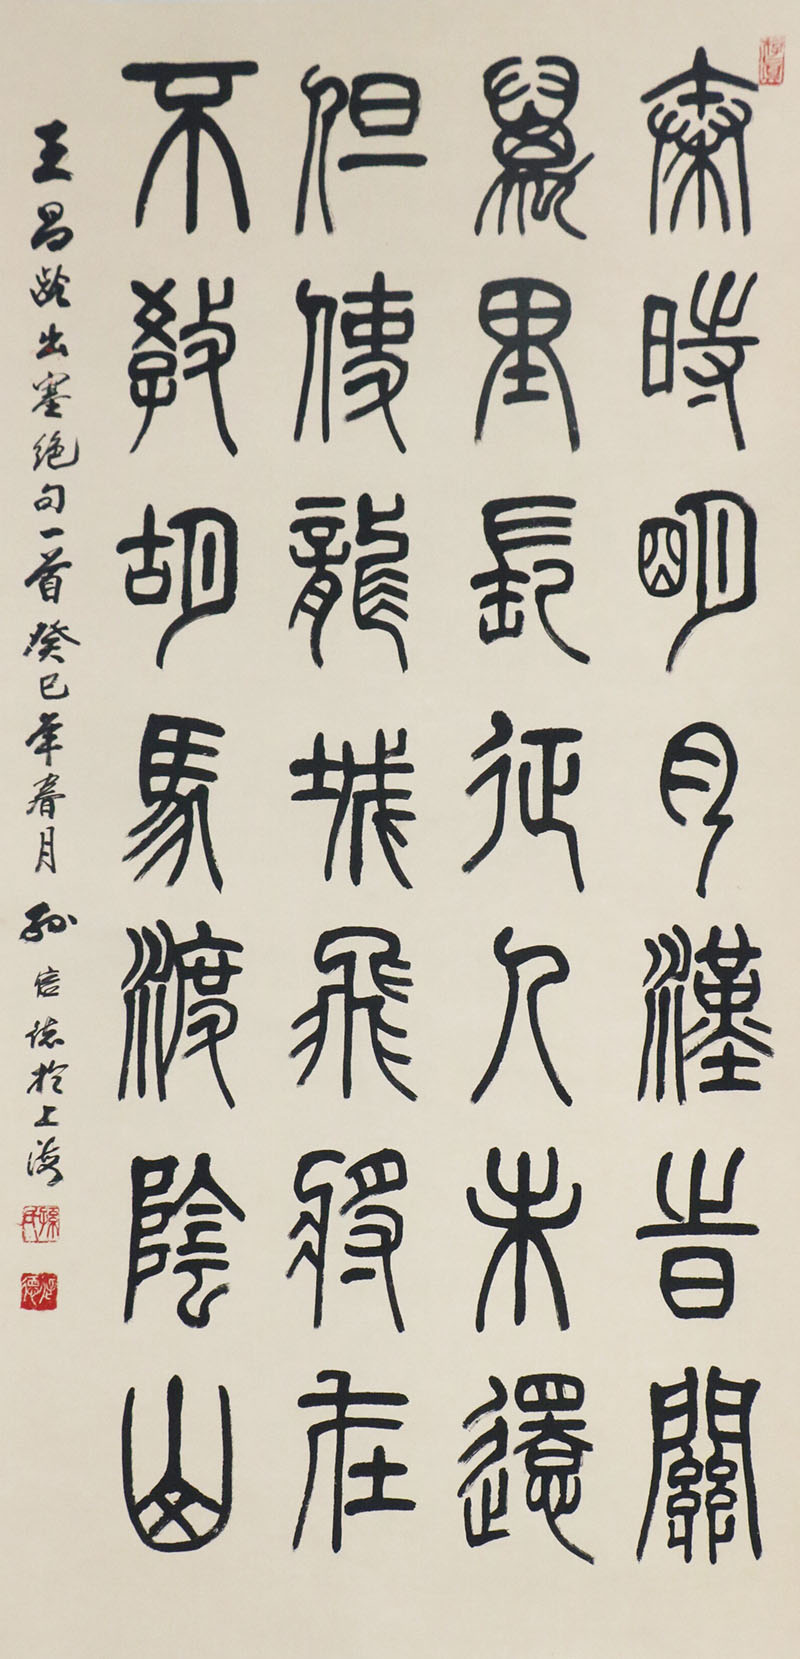 秦時明月漢旹關
萬里長征人未還
但使龍城飛將在
不教胡馬渡陰山
王昌齡出塞絕句一首癸巳年春月 孫信德於上海